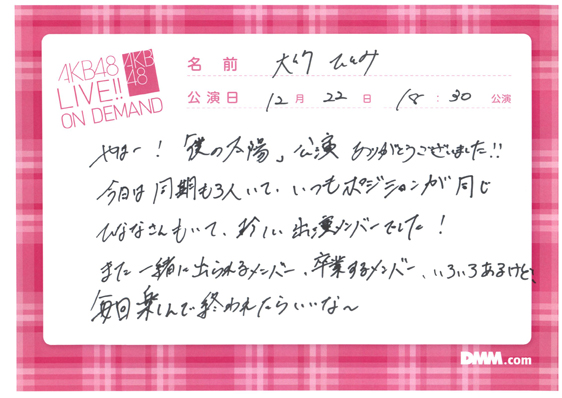 AKB48
LIVE!!
ON DEMAND
AKB
48
名前 大竹 ひとみ
公演日 12月 22日 18:30 公演
やほー！「僕の太陽」公演 ありがとうございました!!
今日は同期も3人いて、いつもポジションが同じ
ひななさんもいて、珍しい出演メンバーでした！
また一緒に出られるメンバー、卒業するメンバー、いろいろあるけど、
毎回楽しんで終われたらいいな〜
DMM.com